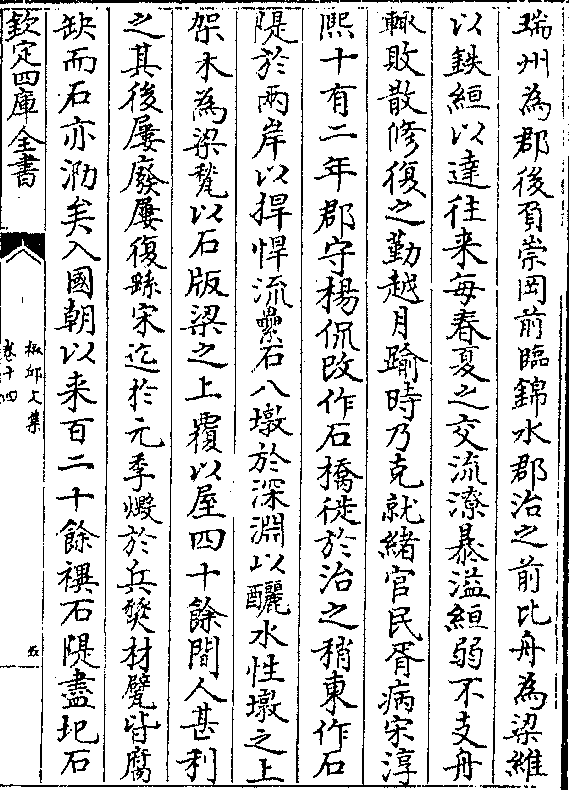 瑞州為郡後負崇岡前臨錦水郡治之前比舟為梁維
以鉄絙以達往来每春夏之交流潦暴溢絙弱不支舟
輙敗散修復之勤越月踰時乃克就緒官民胥病宋淳
熙十有二年郡守楊侃改作石橋徙於治之稍東作石
隄於两岸以捍悍流壘石八墩於深淵以釃水性墩之上
架木為梁甃以石版梁之上覆以屋四十餘間人甚利
之其後屢廢屢復繇宋迄於元季燬於兵燹材甓皆腐
缺而石亦泐矣入國朝以来百二十餘禩石隄盡圮石
欽定四庫全書
椒邱文集
卷十四
五